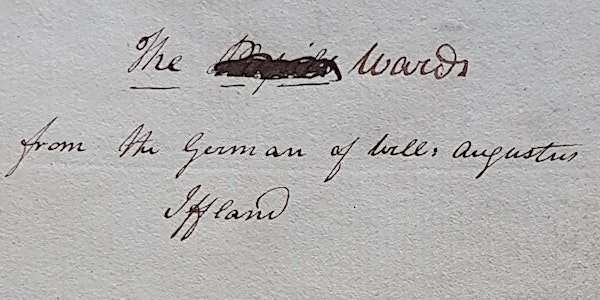 The Wards
from the German of Will: Augustus
Iffland